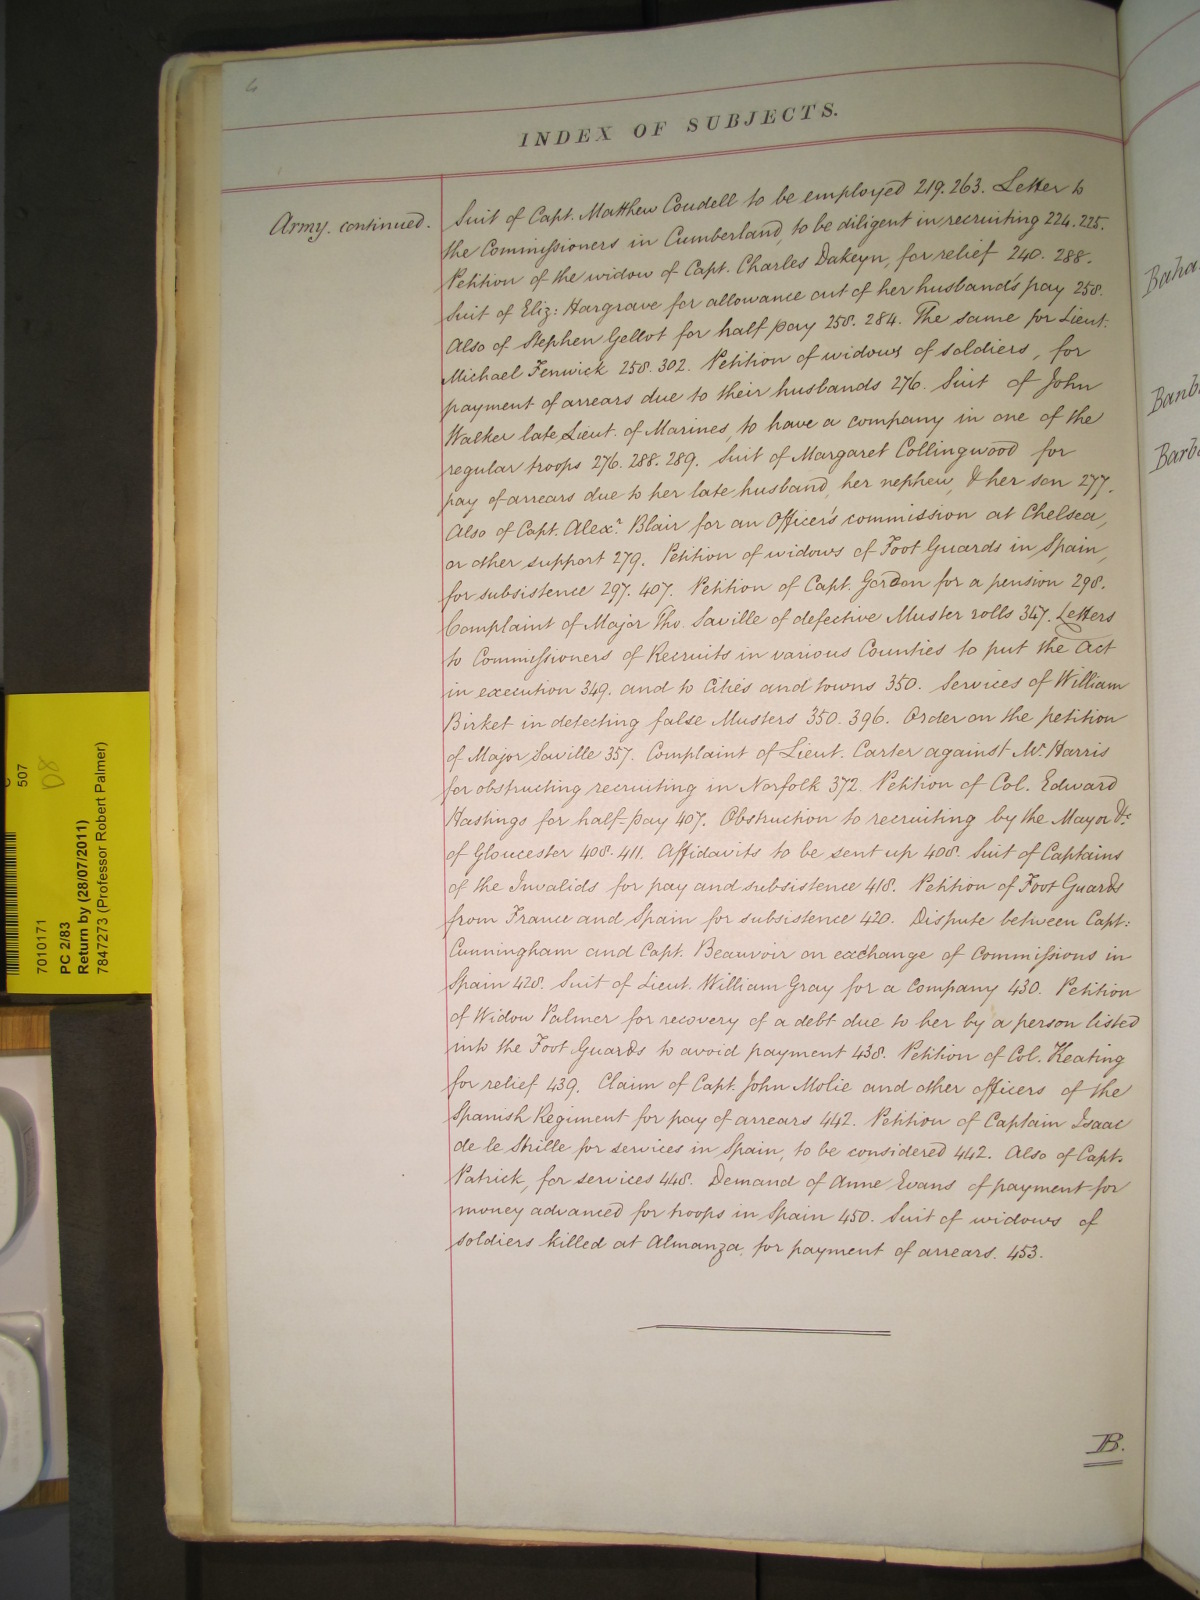 6
INDEX OF SUBJECTS.
Army. continued.
Suit of Capt. Matthew Coudell to be employed 219. 263. Letter to
the Commissioners in Cumberland, to be diligent in recruiting 224. 225.
Petition of the widow of Capt. Charles Dakeyn, for relief 240. 288.
Suit of Eliz: Hargrave for allowance out of her husband's pay 258.
Also of Stephen Gellot for half pay 258. 284. The same for Lieut.
Michael Fenwick 258. 302. Petition of widows of soldiers, for
payment of arrears due to their husbands 276. Suit of John
Walker late Lieut. of Marines, to have a company in one of the
regular troops 276. 288. 289. Suit of Margaret Collingwood for
pay of arrears due to her late husband, her nephew, & her son 277.
Also of Capt. Alexr. Blair for an Officer's commission at Chelsea,
or other support 279. Petition of widows of Foot Guards in Spain,
for subsistence 297. 407. Petition of Capt. Gordon for a pension 298.
Complaint of Major Tho. Saville of defective Muster rolls 347. Letters
to Commissioners of Recruits in various Counties to put the Act
in execution 349. and to Cities and towns 350. Services of William
Birket in detecting false Musters 350. 396. Order on the petition
of Major Saville 357. Complaint of Lieut. Carter against Mr. Harris
for obstructing recruiting in Norfolk 372. Petition of Col. Edward
Hastings for half-pay 407. Obstruction to recruiting by the Mayor &c
of Gloucester 408. 411. Affidavits to be sent up 408. Suit of Captains
of the Invalids for pay and subsistence 418. Petition of Foot Guards
from France and Spain for subsistence 420. Dispute between Capt:
Cunningham and Capt. Beauvoir on exchange of Commissions in
Spain 428. Suit of Lieut. William Gray for a Company 430. Petition
of Widow Palmer for recovery of a debt due to her by a person listed
into the Foot Guards to avoid payment 438. Petition of Col. Keating
for relief 439. Claim of Capt. John Molie and other officers of the
Spanish Regiment for pay of arrears 442. Petition of Captain Isaac
de le Strille for services in Spain, to be considered 442. Also of Capt.
Patrick, for services 448. Demand of Anne Evans of payment for
money advanced for troops in Spain 450. Suit of widows of
soldiers killed at Almanza, for payment of arrears. 453.
B.
Baha
Banb
Barb
507
D8
7010171
PC 2/83
Return by (28/07/2011)
7847273 (Professor Robert Palmer)